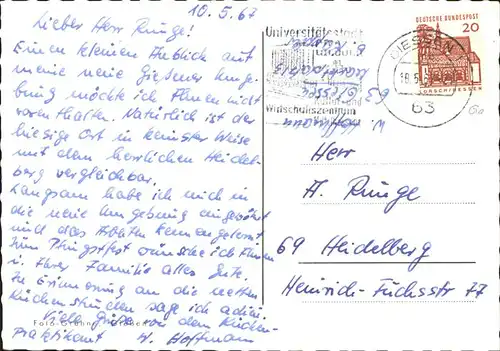 10.5.67
Lieber Herr Runge!
Einen kleinen Anblick auf
meine neue Giessener Umge-
bung möchte ich Ihnen nicht
vorenthalten. Natürlich ist der
hiesige Ort in keinster Weise
mit dem herrlichen Heidel-
berg vergleichbar.
Langsam habe ich mich in
die neue Umgebung eingewöhnt
und das Arbeiten kennengelernt.
Zum Pfingstfest wünsche ich Ihnen
u. Ihrer Familie alles Gute.
In Erinnerung an die netten
Küchenstunden sage ich adieu.
Viele Grüße von dem Küchen-
Praktikant W. Hoffmann
Universitätsstadt
Wirtschaftszentrum
GIESSEN
63
DEUTSCHE BUNDESPOST
20
LORSCH/HESSEN
W. Hoffmann
63 Giessen
Herr
A. Runge
69 Heidelberg
Heinrich-Fuchsstr 77